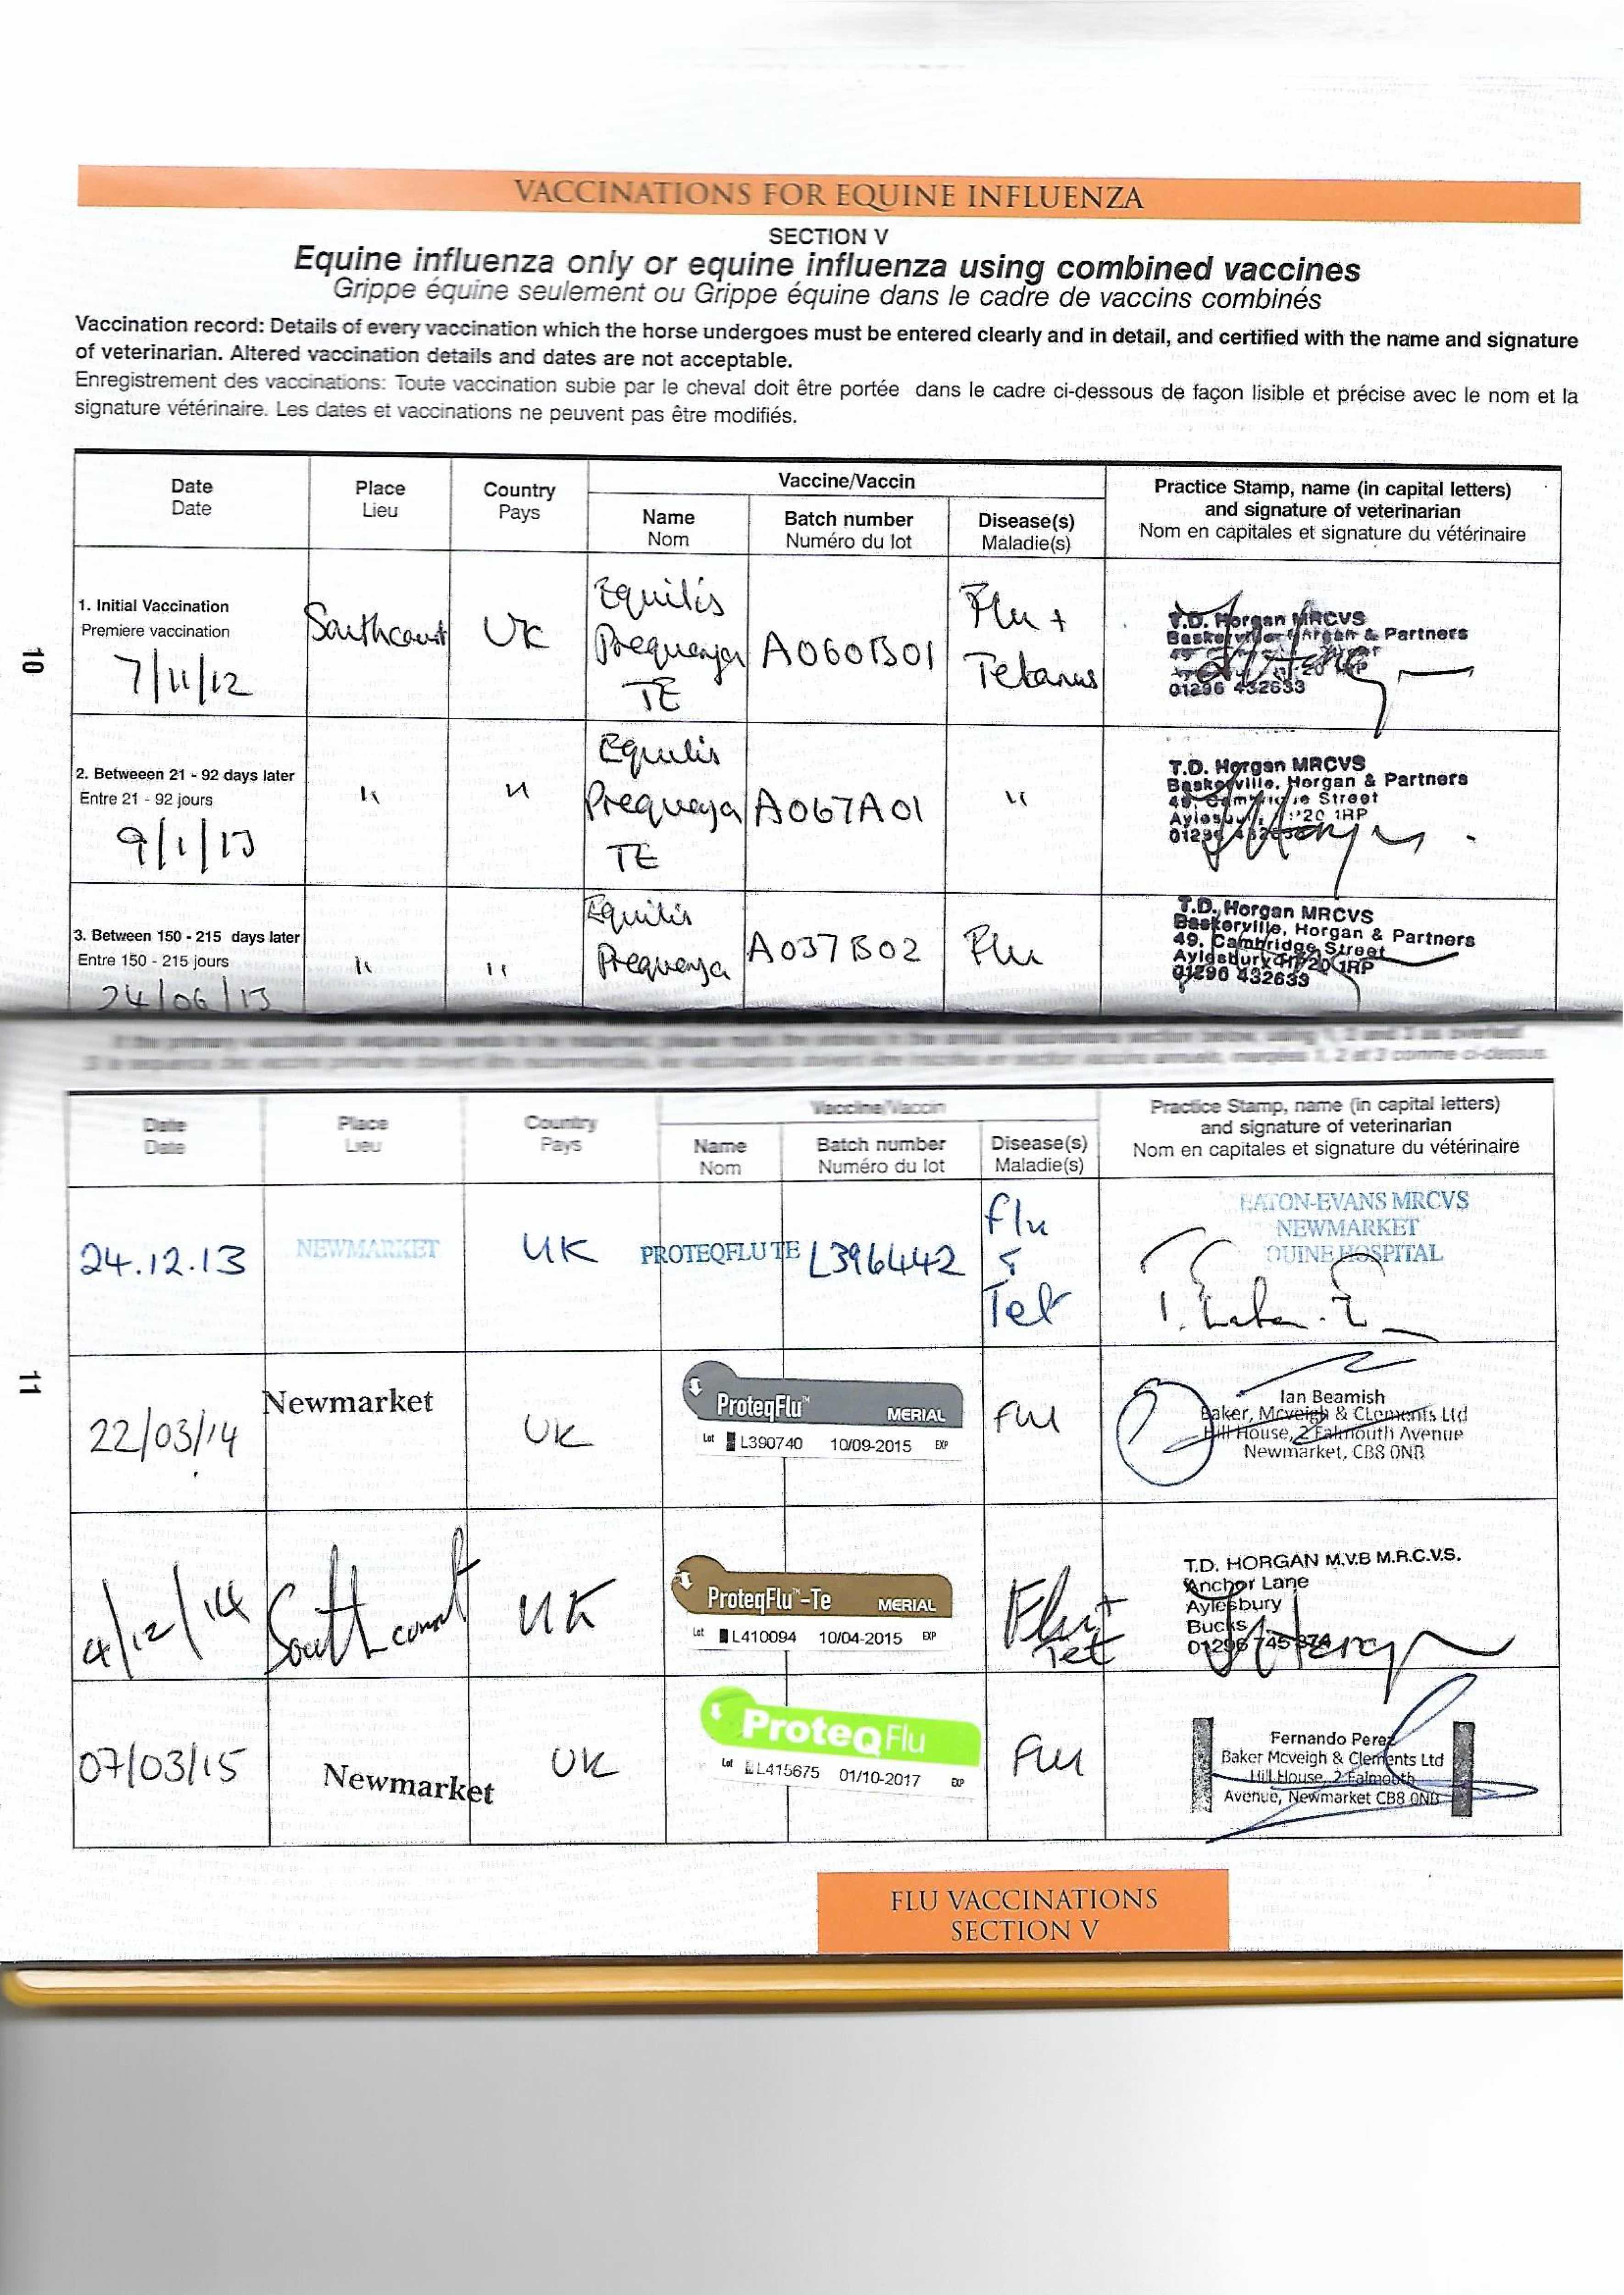 VACCINATIONS FOR EQUINE INFLUENZA
SECTION V
Equine influenza only or equine influenza using combined vaccines
Grippe équine seulement ou Grippe équine dans le cadre de vaccins combinés
Vaccination record: Details of every vaccination which the horse undergoes must be entered clearly and in detail, and certified with the name and signature
of veterinarian. Altered vaccination details and dates are not acceptable.
Enregistrement des vaccinations: Toute vaccination subie par le cheval doit être portée dans le cadre ci-dessous de façon lisible et précise avec le nom et la
signature vétérinaire. Les dates et vaccinations ne peuvent pas être modifiés.
Date
Date
Place
Lieu
Country
Pays
Vaccine/Vaccin
Name
Nom
Batch number
Numéro du lot
Disease(s)
Maladie(s)
Practice Stamp, name (in capital letters)
and signature of veterinarian
Nom en capitales et signature du vétérinaire
10
1. Initial Vaccination
Premiere vaccination
7/11/12
Southcourt
UK
Equilis
Prequenza
TE
A060B01
Flu +
Tetanus
T.D. Horgan MRCVS
Baskerville Horgan & Partners
01296 432633
2. Betweeen 21 - 92 days later
Entre 21 - 92 jours
9/1/13
"
"
Equilis
Prequenza
TE
A067A01
"
T.D. Horgan MRCVS
Baskerville, Horgan & Partners
49, Cambridge Street
Aylesbury HP20 1RP
01296 432633
3. Between 150 - 215 days later
Entre 150 - 215 jours
24/06/13
"
"
Equilis
Prequenza
A037B02
Flu
T.D. Horgan MRCVS
Baskerville, Horgan & Partners
49, Cambridge Street
Aylesbury HP20 1RP
01296 432633
If the primary vaccination sequence needs to be restarted, please mark the entries in the annual vaccinations section below, using 1, 2 and 3 as overleaf
Si la sequence des vaccins primaires doivent être recommencés, les vaccinations doivent être inscrites en section vaccins annuels, marquées 1, 2 et 3 comme ci-dessus.
Date
Date
Place
Lieu
Country
Pays
Vaccine/Vaccin
Name
Nom
Batch number
Numéro du lot
Disease(s)
Maladie(s)
Practice Stamp, name (in capital letters)
and signature of veterinarian
Nom en capitales et signature du vétérinaire
11
24.12.13
NEWMARKET
UK
PROTEQFLU TE
L396442
Flu
&
Tet
EATON-EVANS MRCVS
NEWMARKET
QUINE HOSPITAL
22/03/14
Newmarket
UK
ProteqFlu™
MERIAL
Lot L390740 10/09-2015 EXP
Flu
Ian Beamish
Baker, Mcveigh & Clements Ltd
Hill House, 2 Falmouth Avenue
Newmarket, CB8 0NB
4/12/14
Southcourt
UK
ProteqFlu™-Te
MERIAL
Lot L410094 10/04-2015 EXP
Flu +
Tet
T.D. HORGAN M.V.B M.R.C.V.S.
Anchor Lane
Aylesbury
Bucks
01296 745 874
07/03/15
Newmarket
UK
ProteqFlu
Lot L415675 01/10-2017 EXP
Flu
Fernando Perez
Baker Mcveigh & Clements Ltd
Hill House, 2 Falmouth
Avenue, Newmarket CB8 0NB
FLU VACCINATIONS
SECTION V